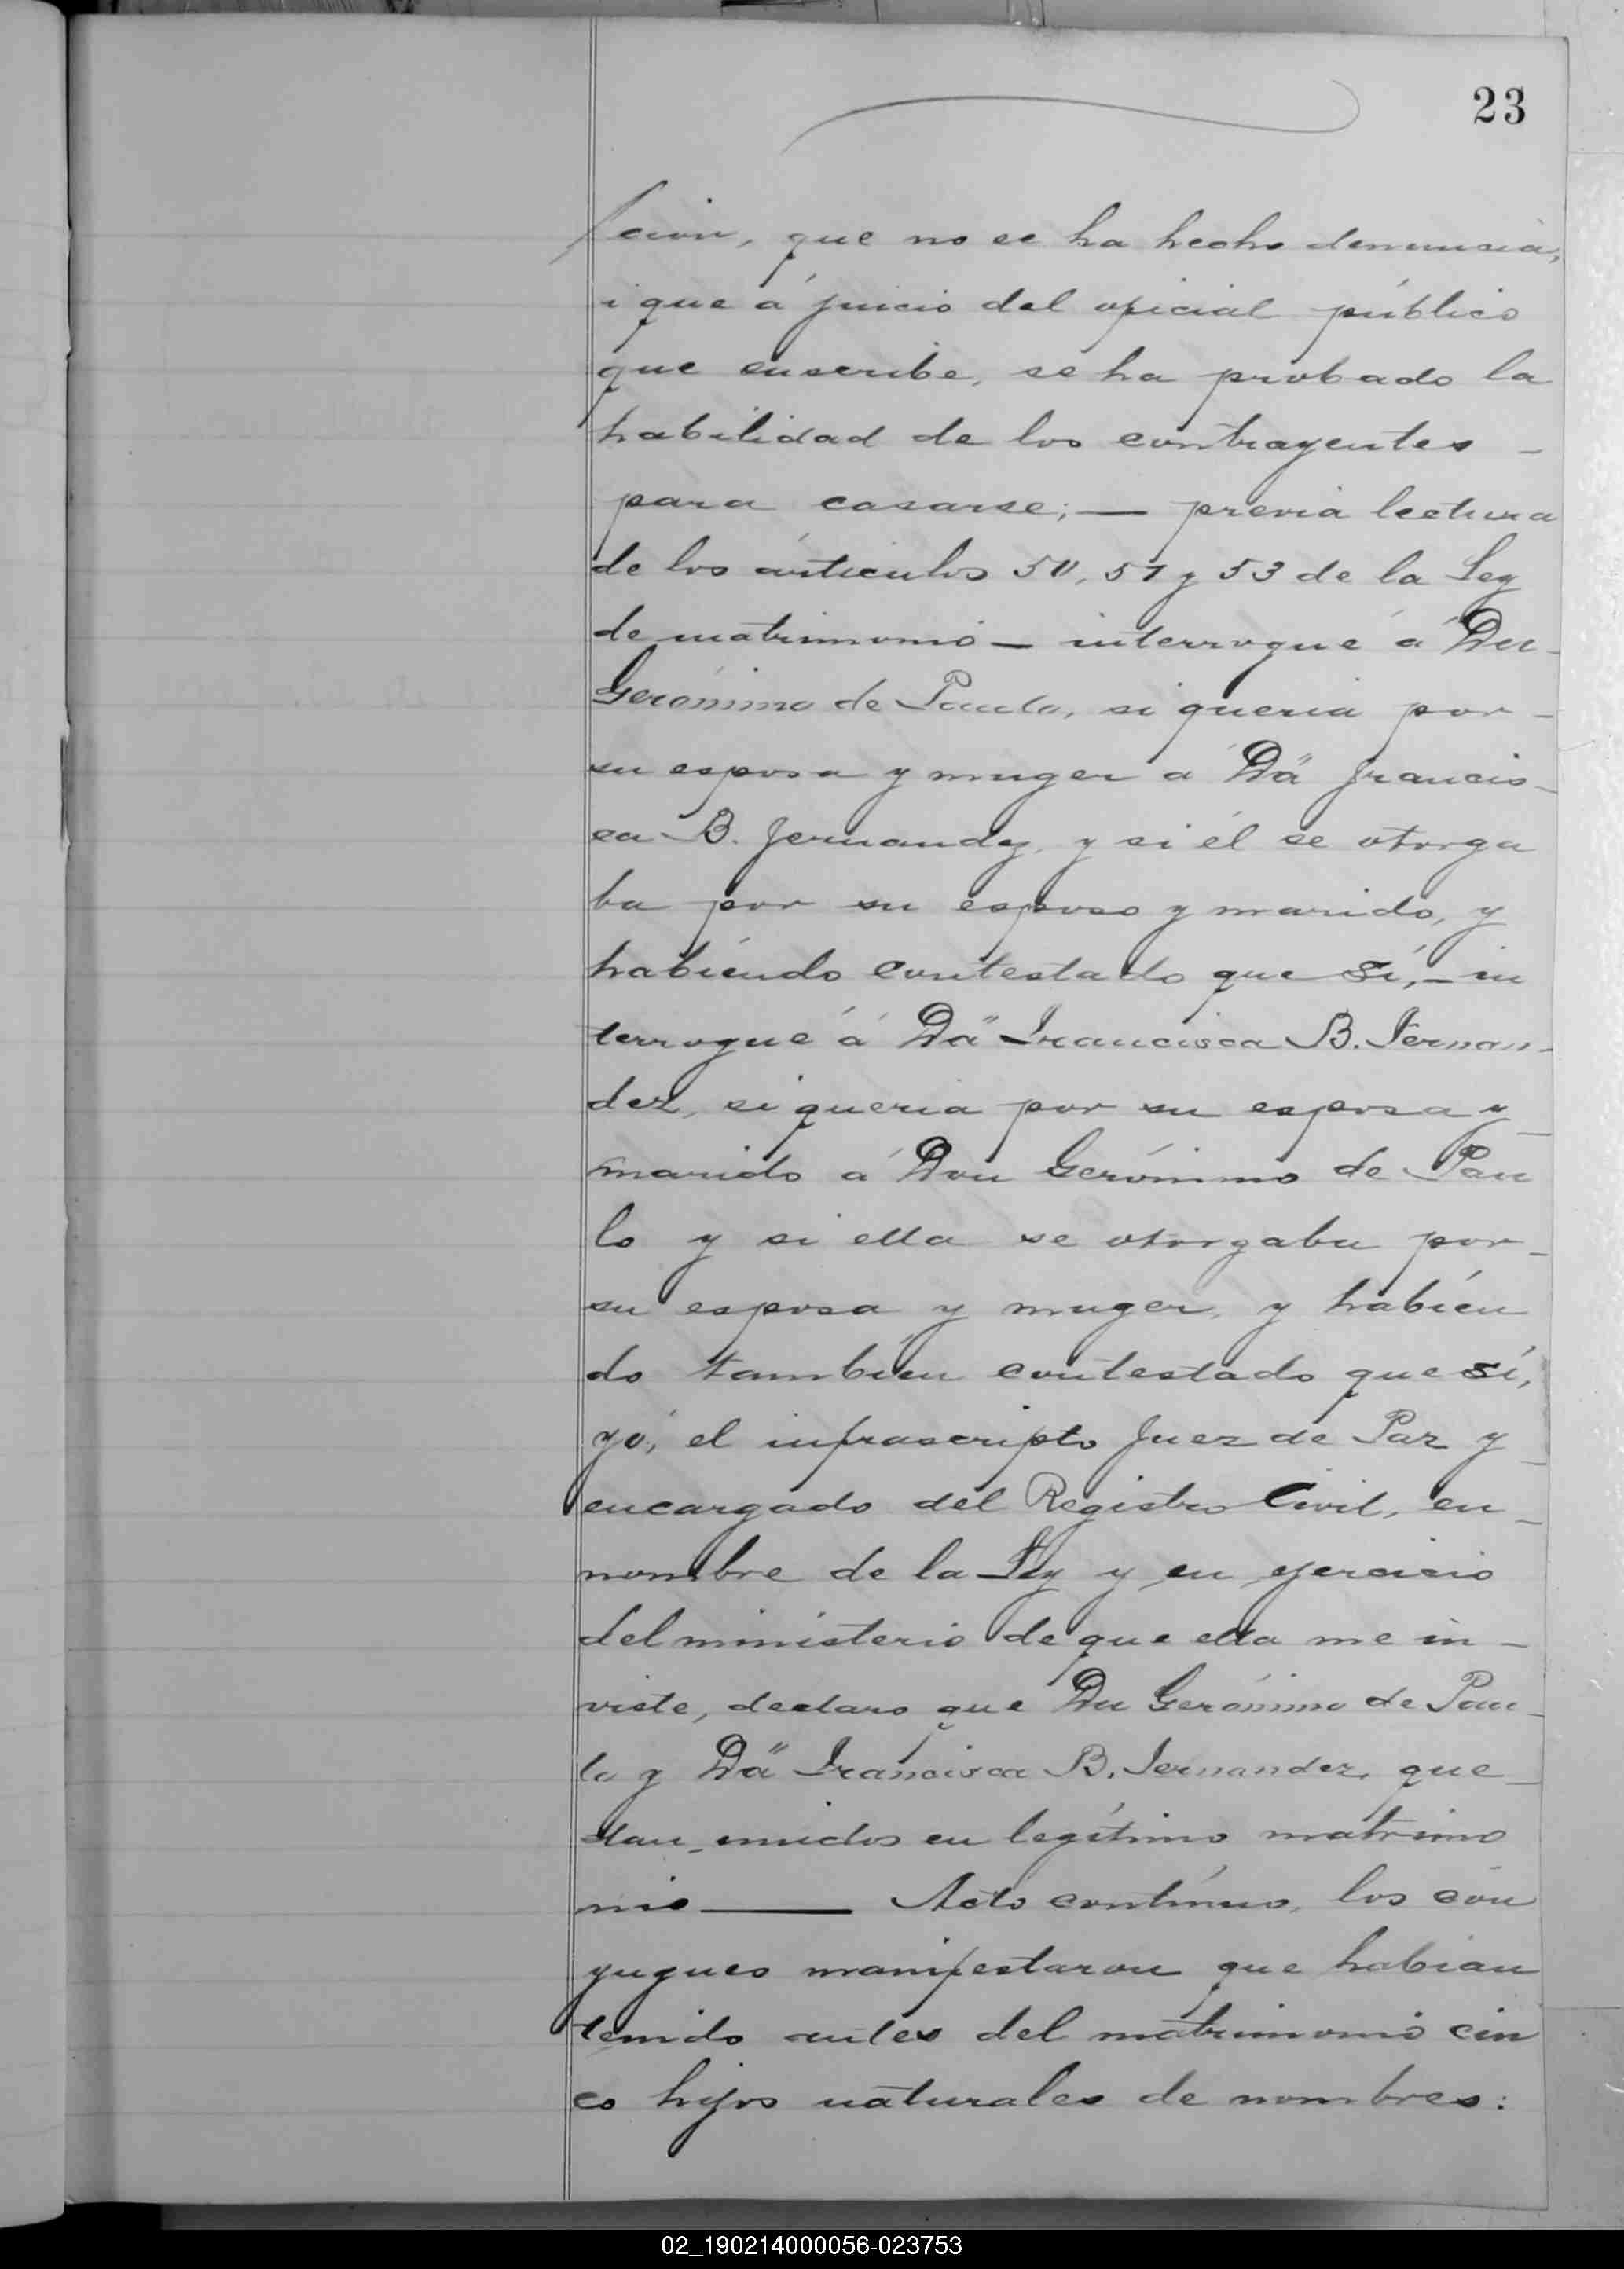 23
cion, que no se ha hecho denuncia,
i que á juicio del oficial público
que suscribe, se ha probado la
habilidad de los contrayentes –
para casarse; — previa lectura
de los artículos 50, 51 y 53 de la Ley
de matrimonio – interrogué á Dn
Gerónimo de Paulo, si queria por –
su esposa y muger á Dª Francis-
ca B. Fernandez, y si él se otorga
ba por su esposo y marido, y
habiendo contestado que sí, – in
terrogué á Dª Francisca B. Fernan-
dez, si queria por su esposa y
marido á Don Gerónimo de Pau
lo y si ella se otorgaba por –
su esposa y muger, y habien
do tambien contestado que sí,
yó, el infrascripto Juez de Paz y
encargado del Registro Civil, en –
nombre de la Ley y en ejercicio
del ministerio de que ella me in –
viste, declaro que Dn Gerónimo de Pau-
lo y Dª Francisca B. Fernandez, que-
dan unidos en legítimo matrimo
nio — Acto contínuo, los cón
yugues manifestaron que habian
tenido antes del matrimonio cin
co hijos naturales de nombres:
02_190214000056-023753